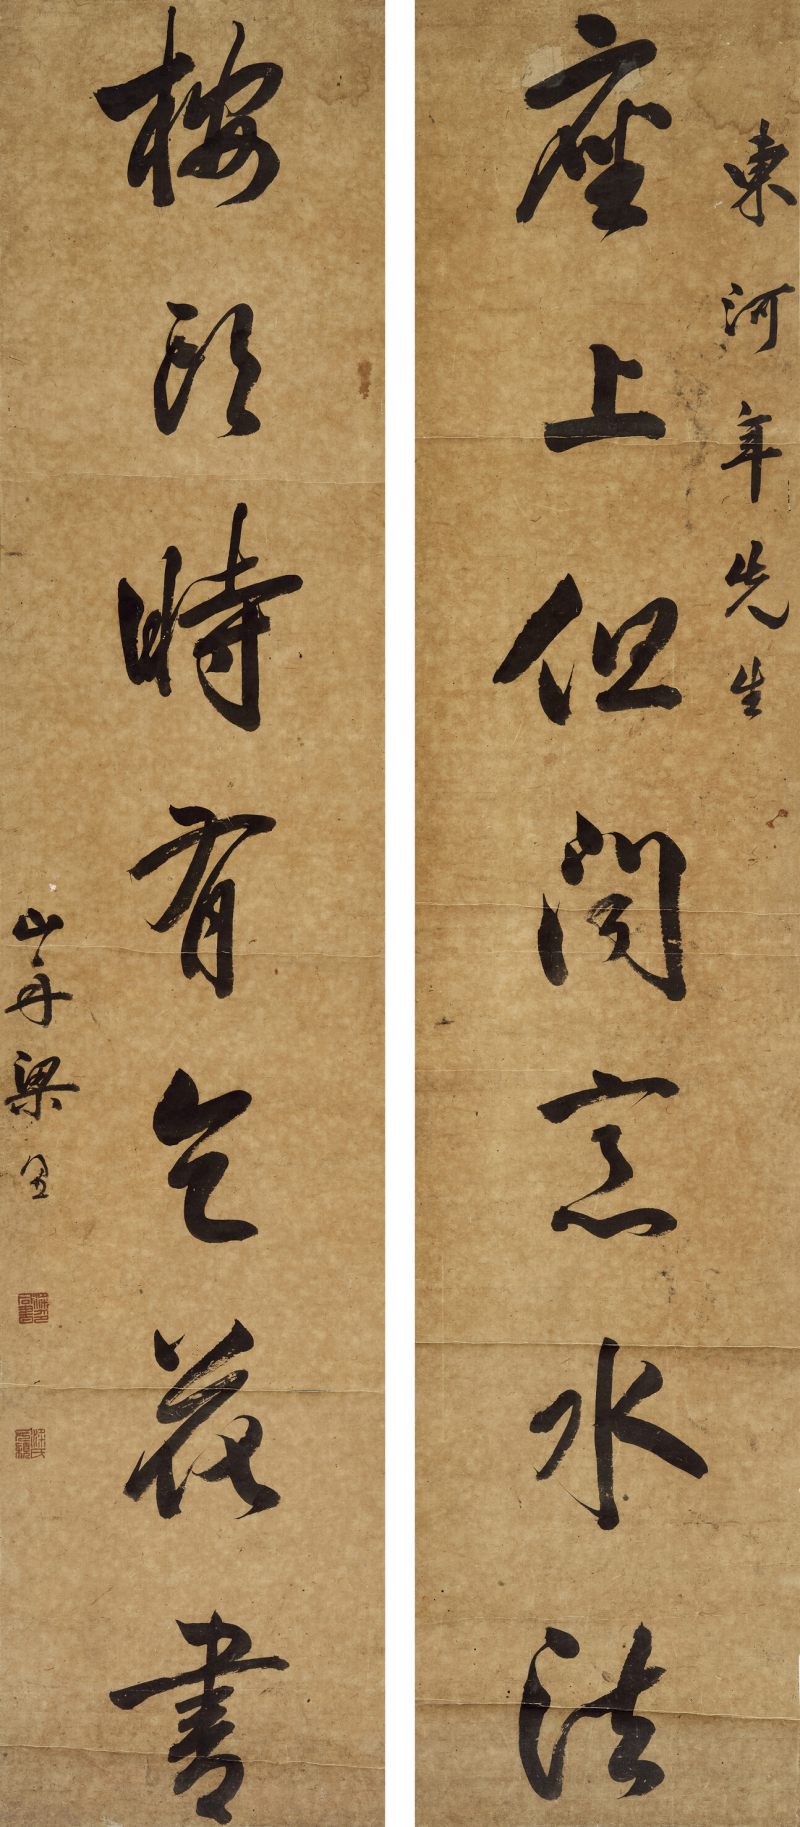 東河年先生
座上但聞宗水法
桉頭時有乞花書
山舟梁同